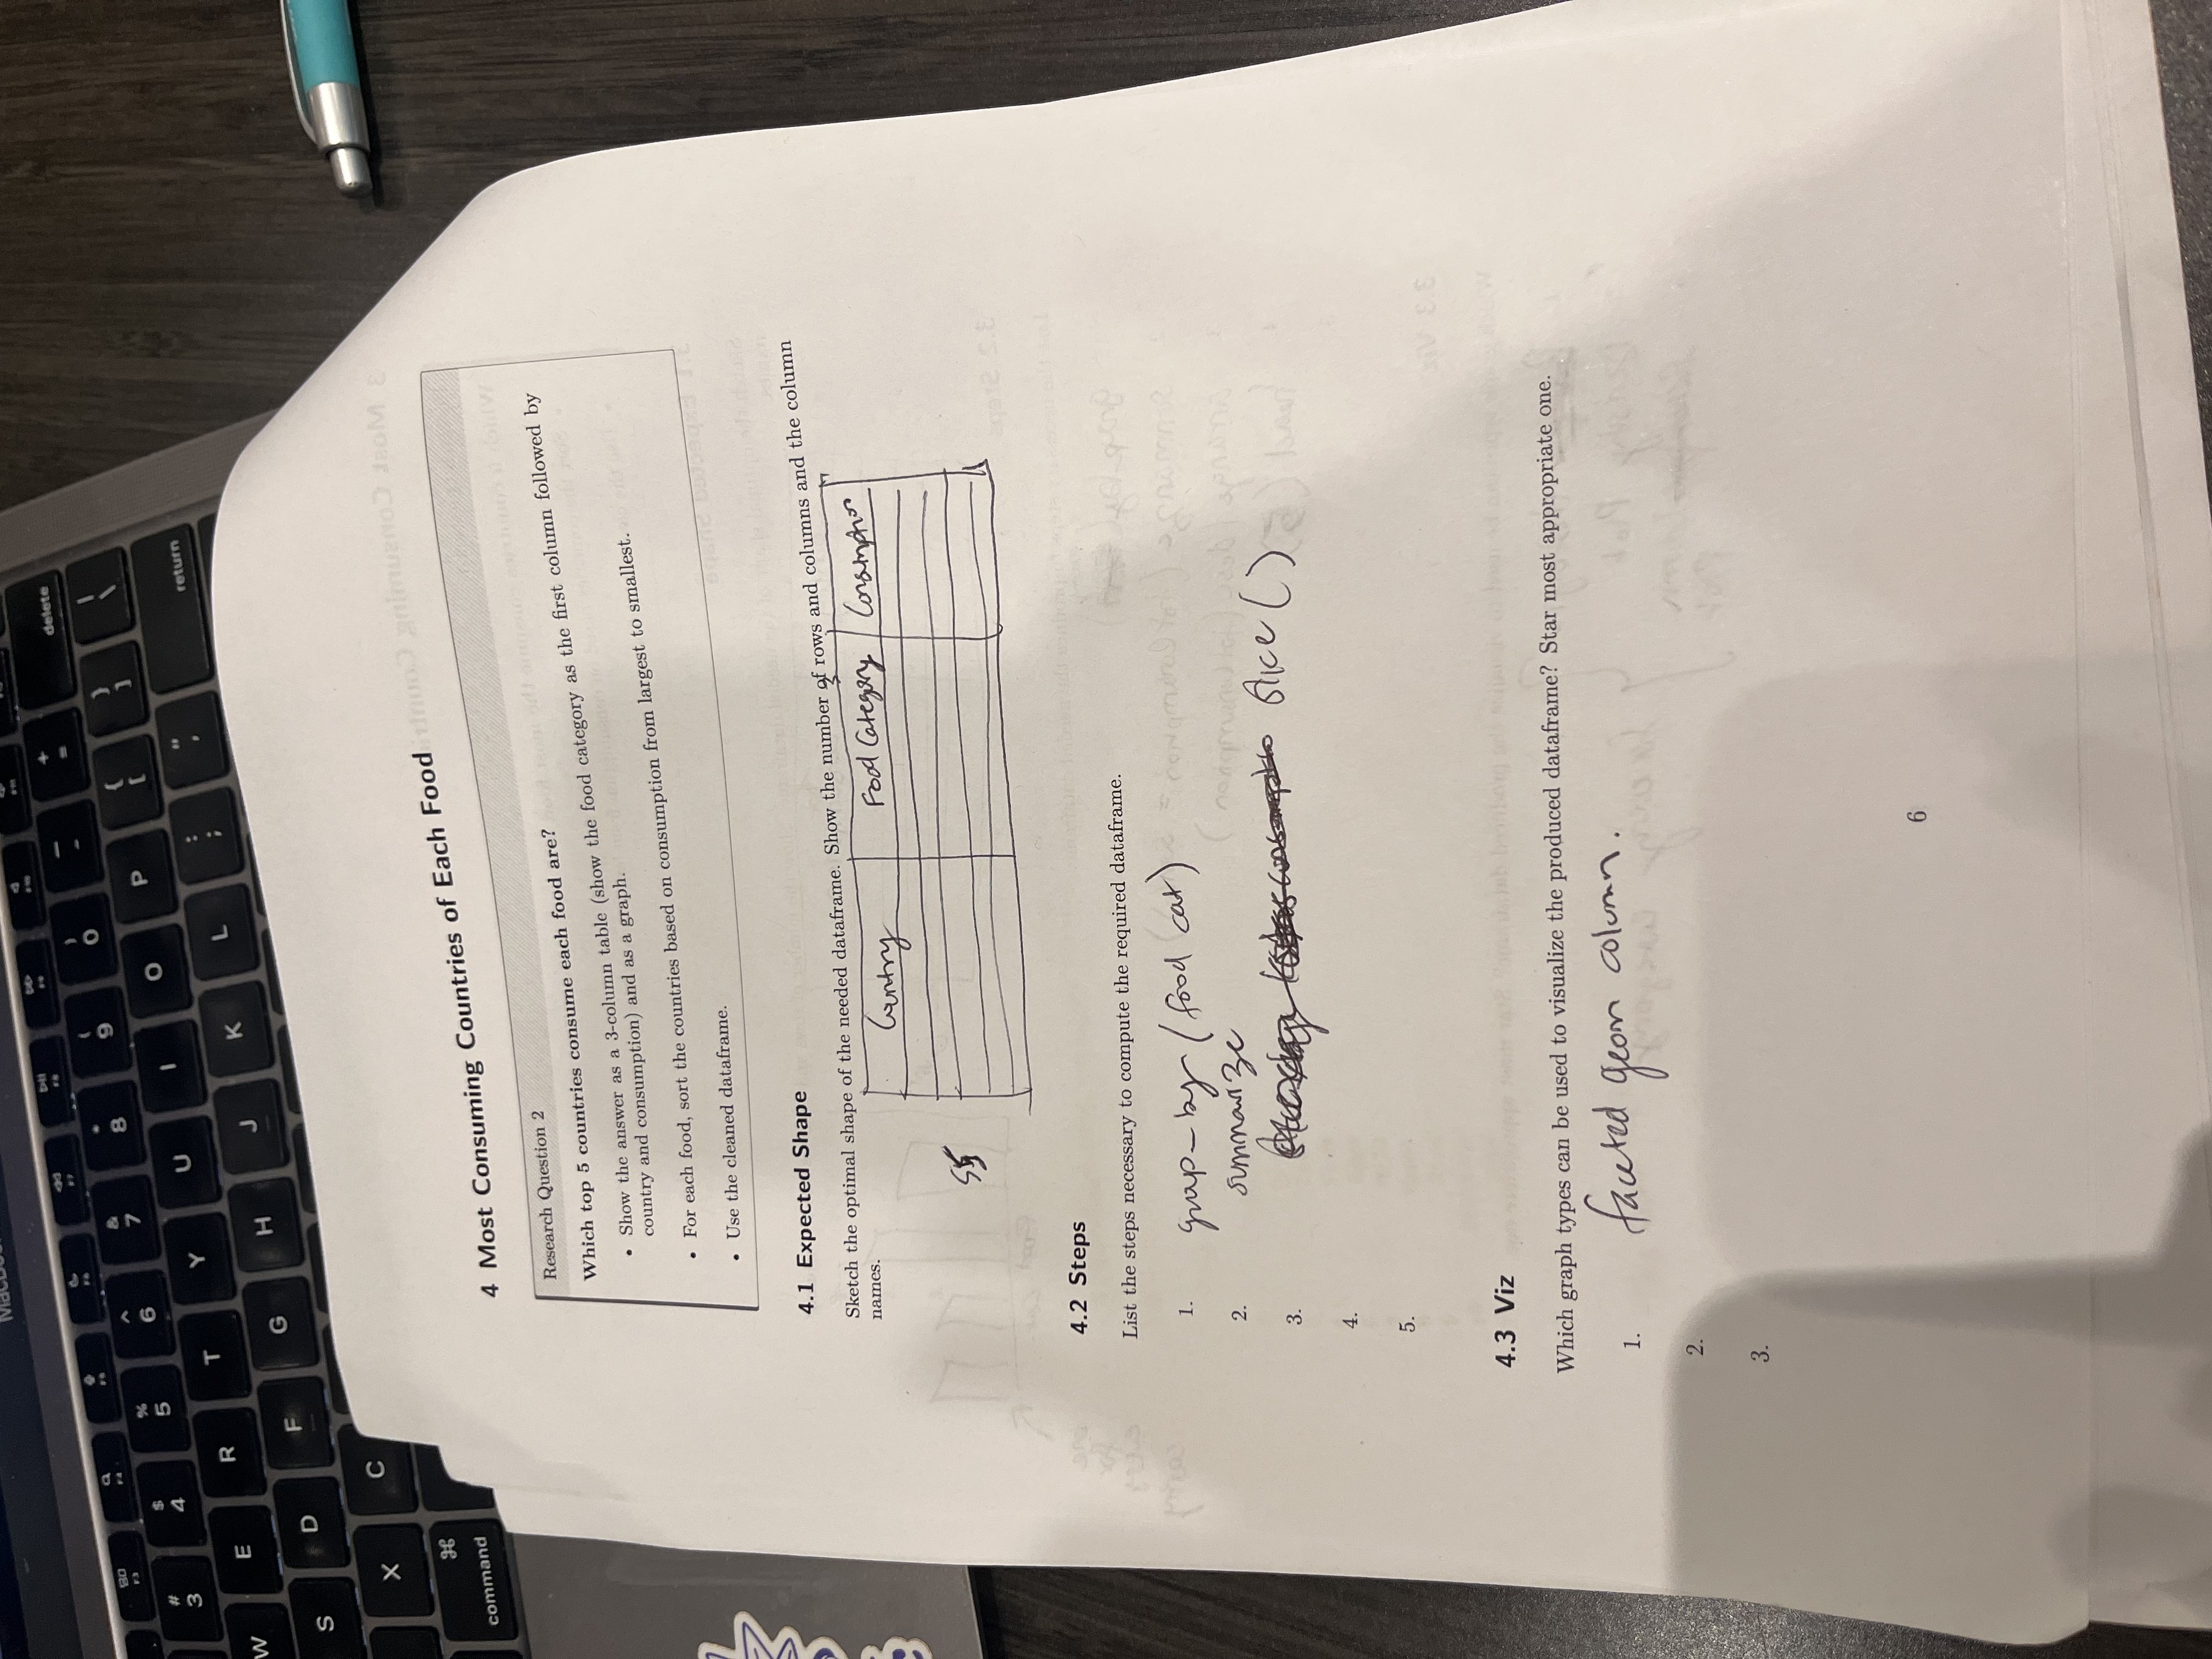 MacBoo
80 F3
F4
F5
F6
F7
F8
F9
F10
delete
# 3
$ 4
% 5
^ 6
& 7
* 8
( 9
) 0
_ -
+ =
W
E
R
T
Y
U
I
O
P
{ [
} ]
| \
S
D
F
G
H
J
K
L
: ;
" '
return
X
C
⌘
command
4 Most Consuming Countries of Each Food
Research Question 2
Which top 5 countries consume each food are?
• Show the answer as a 3-column table (show the food category as the first column followed by
country and consumption) and as a graph.
• For each food, sort the countries based on consumption from largest to smallest.
• Use the cleaned dataframe.
4.1 Expected Shape
Sketch the optimal shape of the needed dataframe. Show the number of rows and columns and the column
names.
3
Country Food Category Consumption
55
4.2 Steps
List the steps necessary to compute the required dataframe.
1. group_by (food cat)
2. summarize
3. slice ()
4.
5.
4.3 Viz
Which graph types can be used to visualize the produced dataframe? Star most appropriate one.
1. faceted geom column.
2.
3.
6